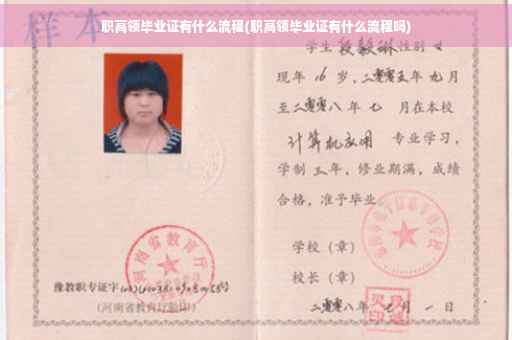 职高领毕业证有什么流程(职高领毕业证有什么流程吗)
样本
学生段毅琳性别女
现年16岁，二零零五年九月
至二零零八年七月在本校
计算机应用 专业学习，
学制三年，修业期满，成绩
合格，准予毕业
学校（章）
校长（章）
二零零八年七月一日
河南省教育厅
豫教职专证字
(河南省教育厅验印)